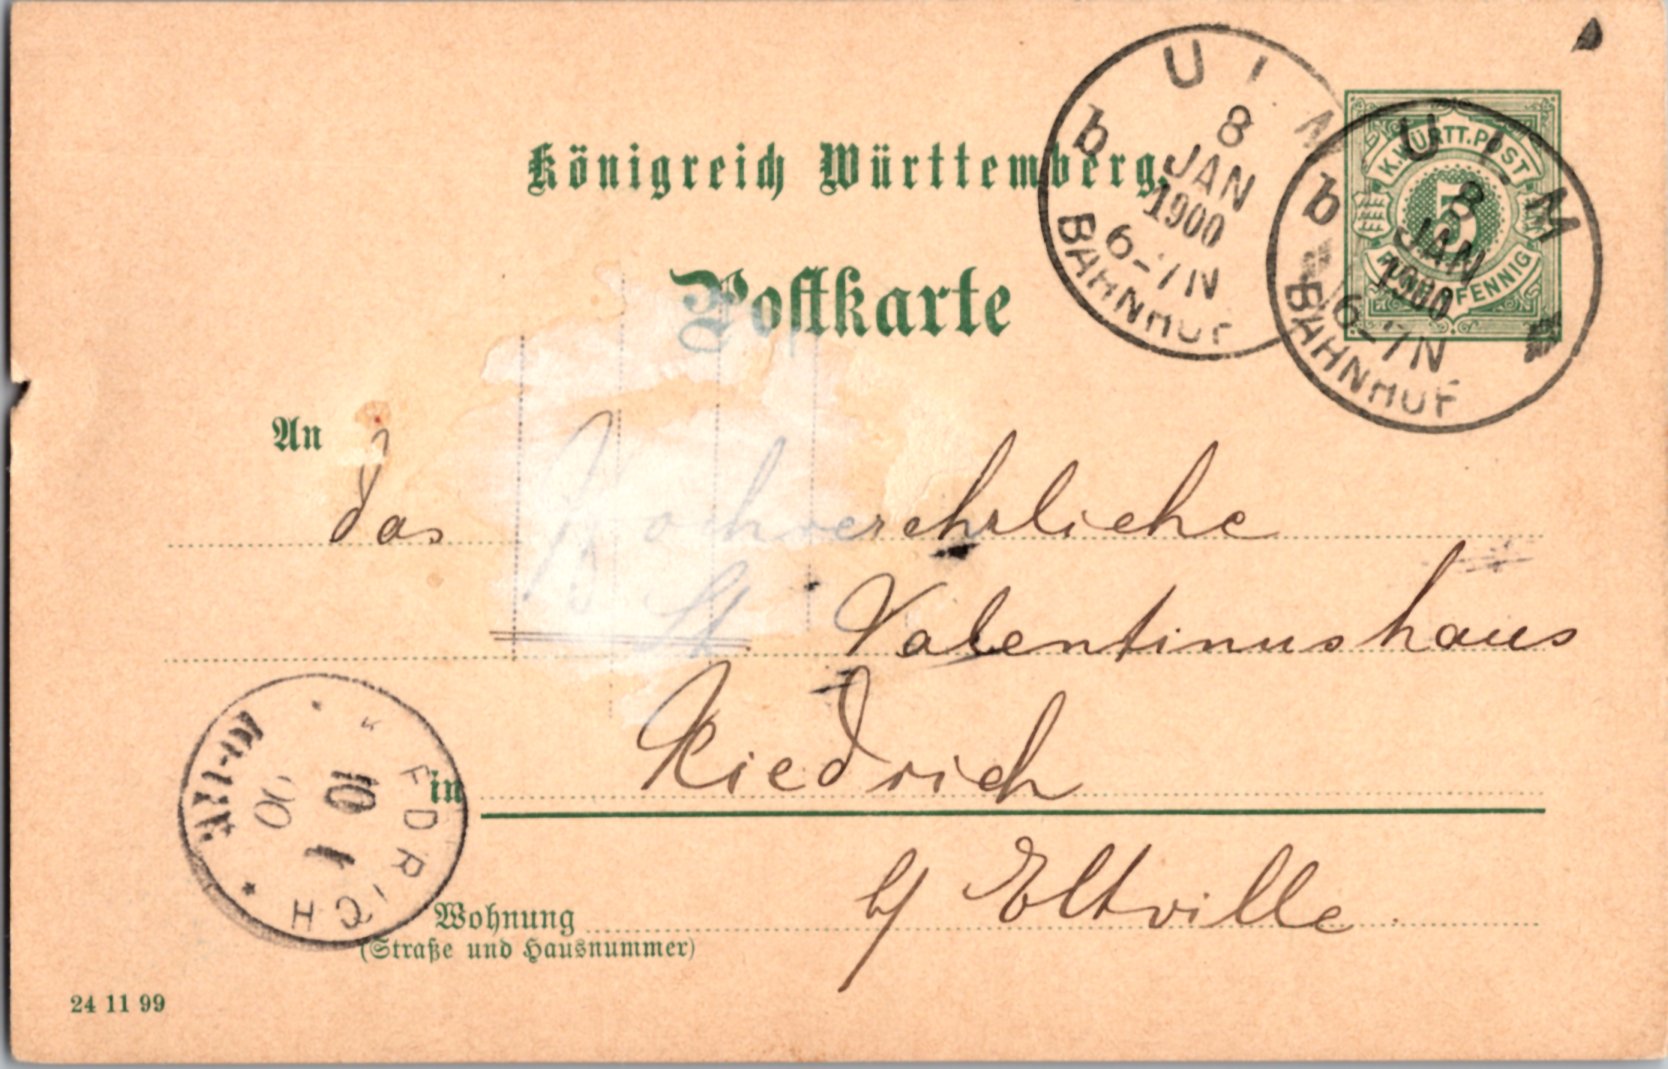 Königreich Württemberg.
Postkarte
ULM
b
8
JAN
1900
6-7N
BAHNHOF
ULM
b
8
JAN
1900
6-7N
BAHNHOF
K. WÜRTT. POST
5
PFENNIG
An
das Hochverehrliche
St Valentinushaus
in
Kiedrich
b/ Eltville
10
1
00
Wohnung
(Straße und Hausnummer)
24 11 99